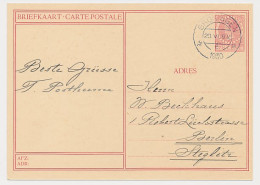 BRIEFKAART-CARTE POSTALE
Beste Grüsse
F. Posthuma
AFZ:
ADRES
Herrn
W. Beckhaus
1 Robert Lückstrasse
Berlin
Steglitz